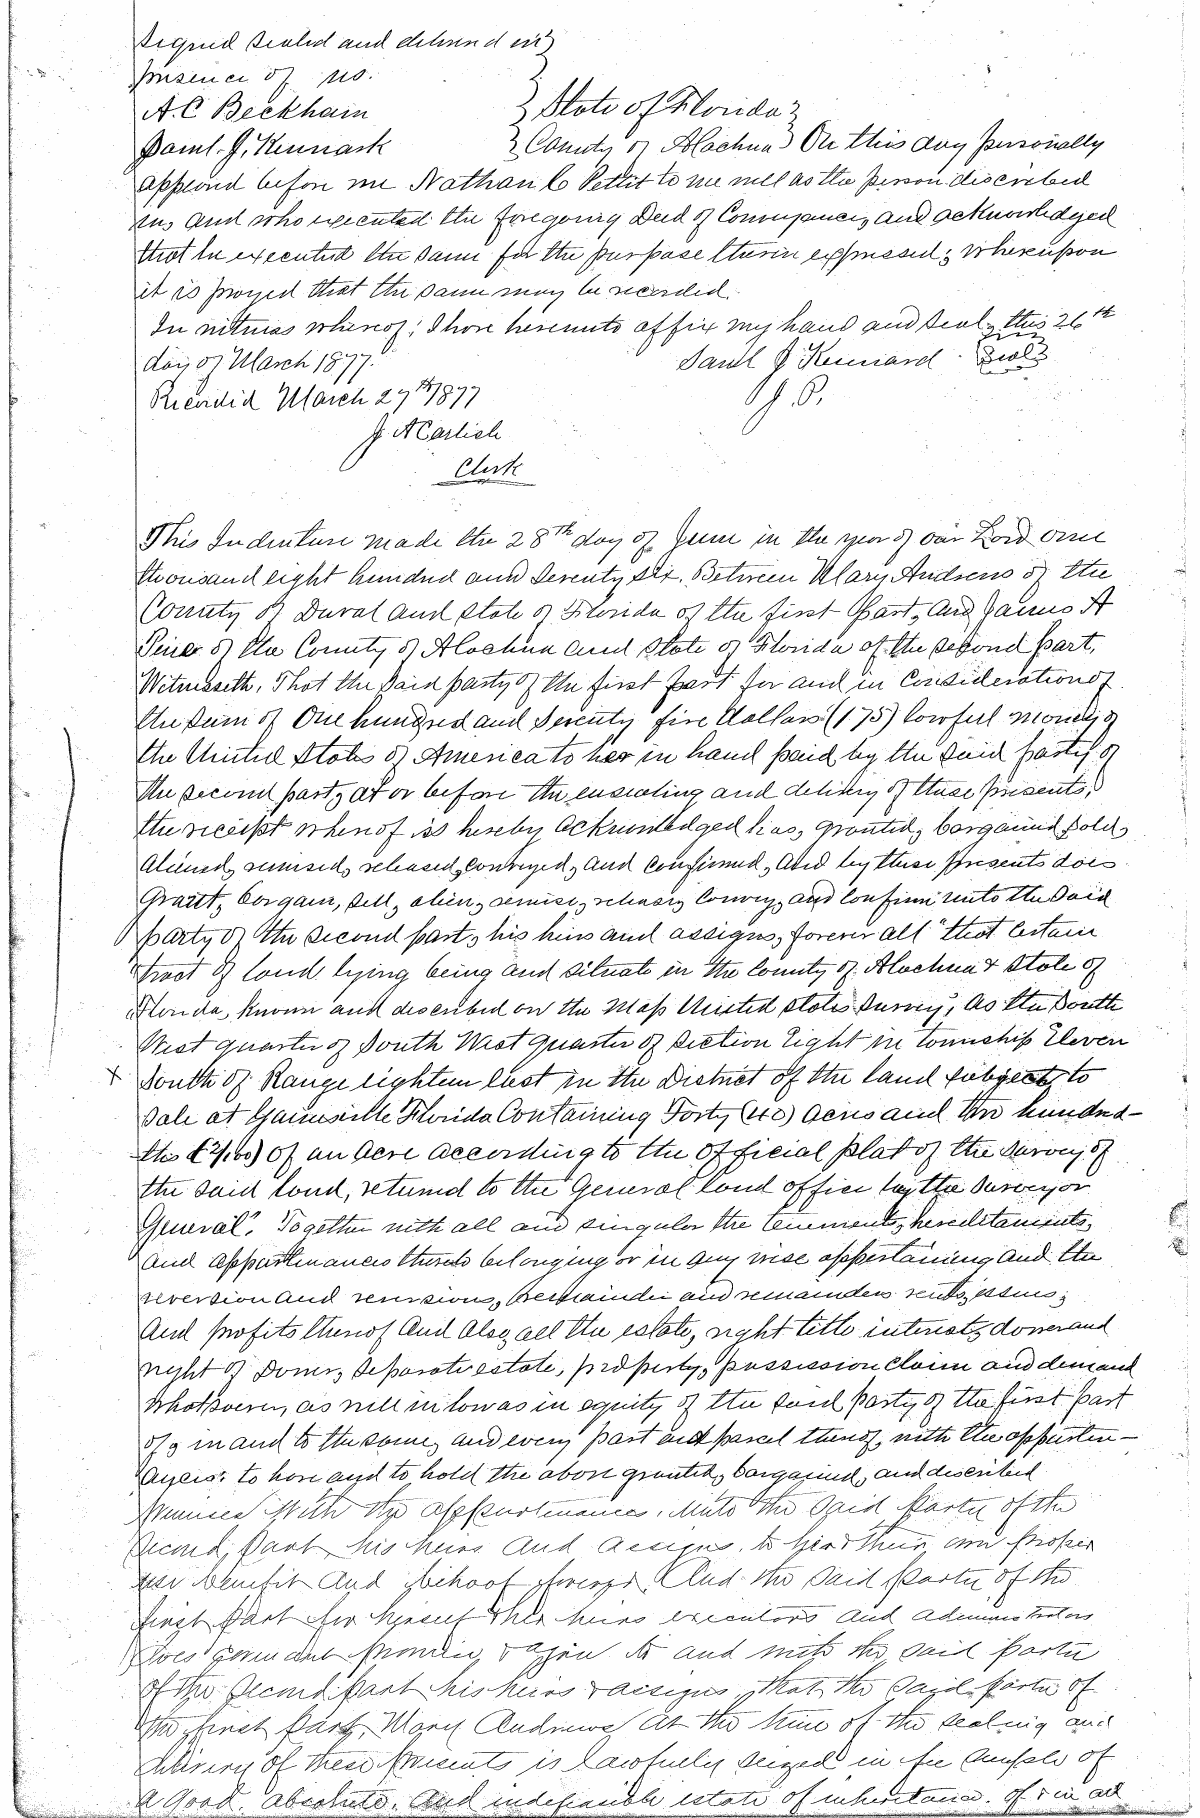 Signed sealed and delivered in
presence of us.
A. C Beckham
Saml. J. Kennard
State of Florida
County of Alachua On this day personally
appeared before me Nathan C Pettit to me well as the person discribed
in, and who executed the foregoing Deed of Conveyance, and acknowledged
that he executed the same for the purpose therin expressed; whereupon
it is prayed that the same may be recorded.
In witness whereof, I have hereunto affix my hand and seal, this 26th
day of March 1877.
Saml J Kennard Seal
J. P.
Recorded March 27th 1877
J. A Carlisle
Clerk
This Indenture made the 28th day of June in the year of our Lord one
thousand eight hundred and Seventy six. Between Mary Andrews of the
County of Duval and State of Florida of the first Part, and James A
of the County of Alachua and State of Florida of the second part,
Witnesseth, That the said party of the first part for and in Consideration of
the sum of One hundred and Seventy five Dollars (175) lawful money of
the United States of America to her in hand paid by the said party of
the second part, at or before the ensealing and delivery of these presents,
the receipt whereof is hereby acknowledged has, granted, bargained, sold,
aliened, remised, released, conveyed, and confirmed, and by these presents does
Grant, bargain, sell, alien, remise, release, convey, and confirm unto the said
party of the second part, his heirs and assigns, forever all "that certain
tract of land lying being and situate in the County of Alachua & State of
Florida, known and described on the Map United States Survey, as the South
West quarter of South West quarter of section Eight in township Eleven
x South of Range eighteen East in the District of the land subject to
sale at Gainesville Florida Containing Forty (40) acres and two hundred-
ths (2/100) of an acre according to the official plat of the survey of
the said land, returned to the General land office by the Surveyor
General". Together with all and singular the tenements, hereditaments,
and appurtenances thereto belonging or in any wise appertaining and the
reversion and reversions, remainder and remainders rents, issues,
and profits thereof And also, all the estate, right title interest, dower and
right of Dower, separate estate, property, possession claim and demand
whatsoever, as well in law as in equity of the said party of the first part
of, in and to the same, and every part and parcel thereof, with the appurten-
ances: to have and to hold the above granted, bargained, and described
premises With the appurtenances, unto the said Party of the
Second, Part his heirs and assigns, to his & their own proper
use benefit and behoof forever. And the said Party of the
first Part for herself & her heirs executors and administrators
does covenant promise & agree to and with the said Party
of the Second part his heirs & assigns, that the said party of
the first part, Mary Andrews at the time of the sealing and
delivery of these presents is lawfully seized in fee simple of
a good, absolute, and indefeasible estate of inheritance. of & in all